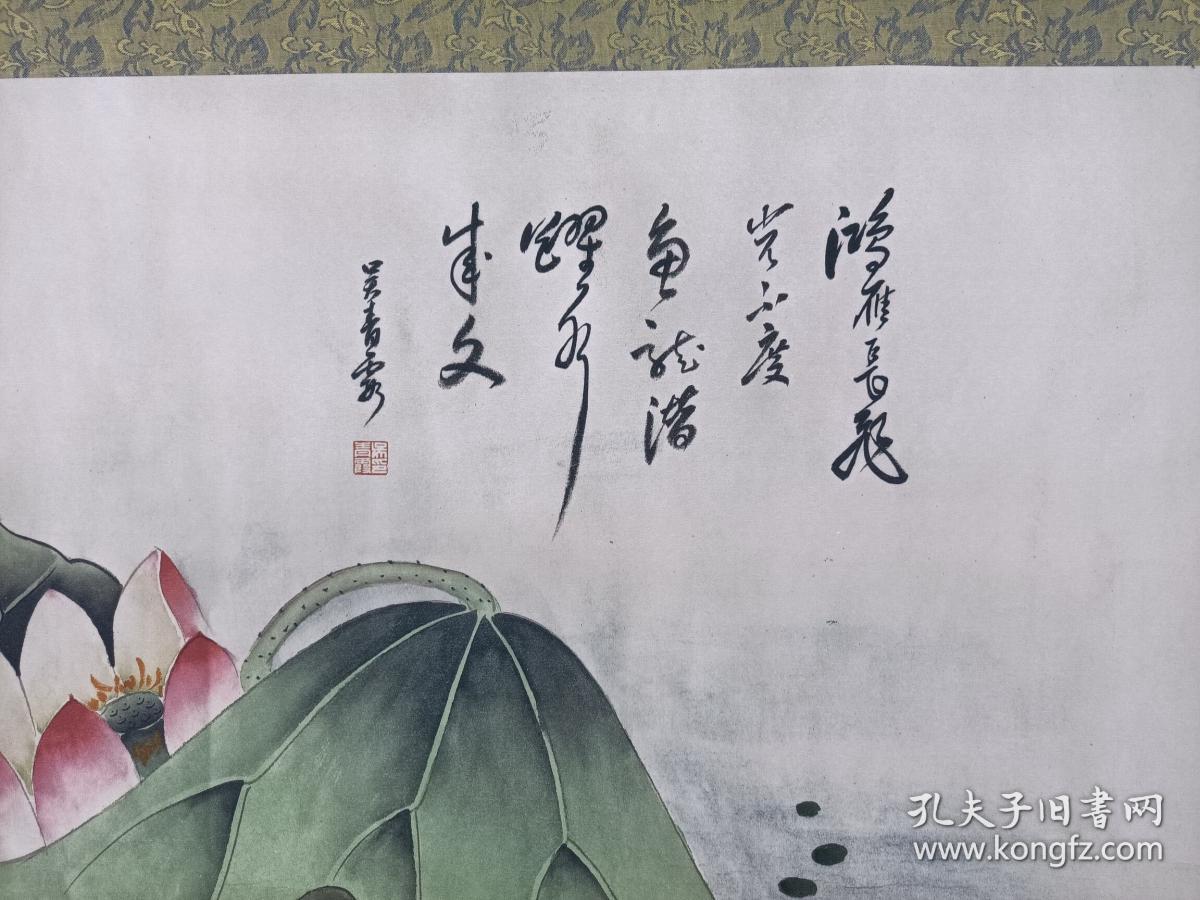 鴻雁長飛
光不度
魚龍潛
躍水
成文
吴青霞
孔夫子旧书网
www.kongfz.com